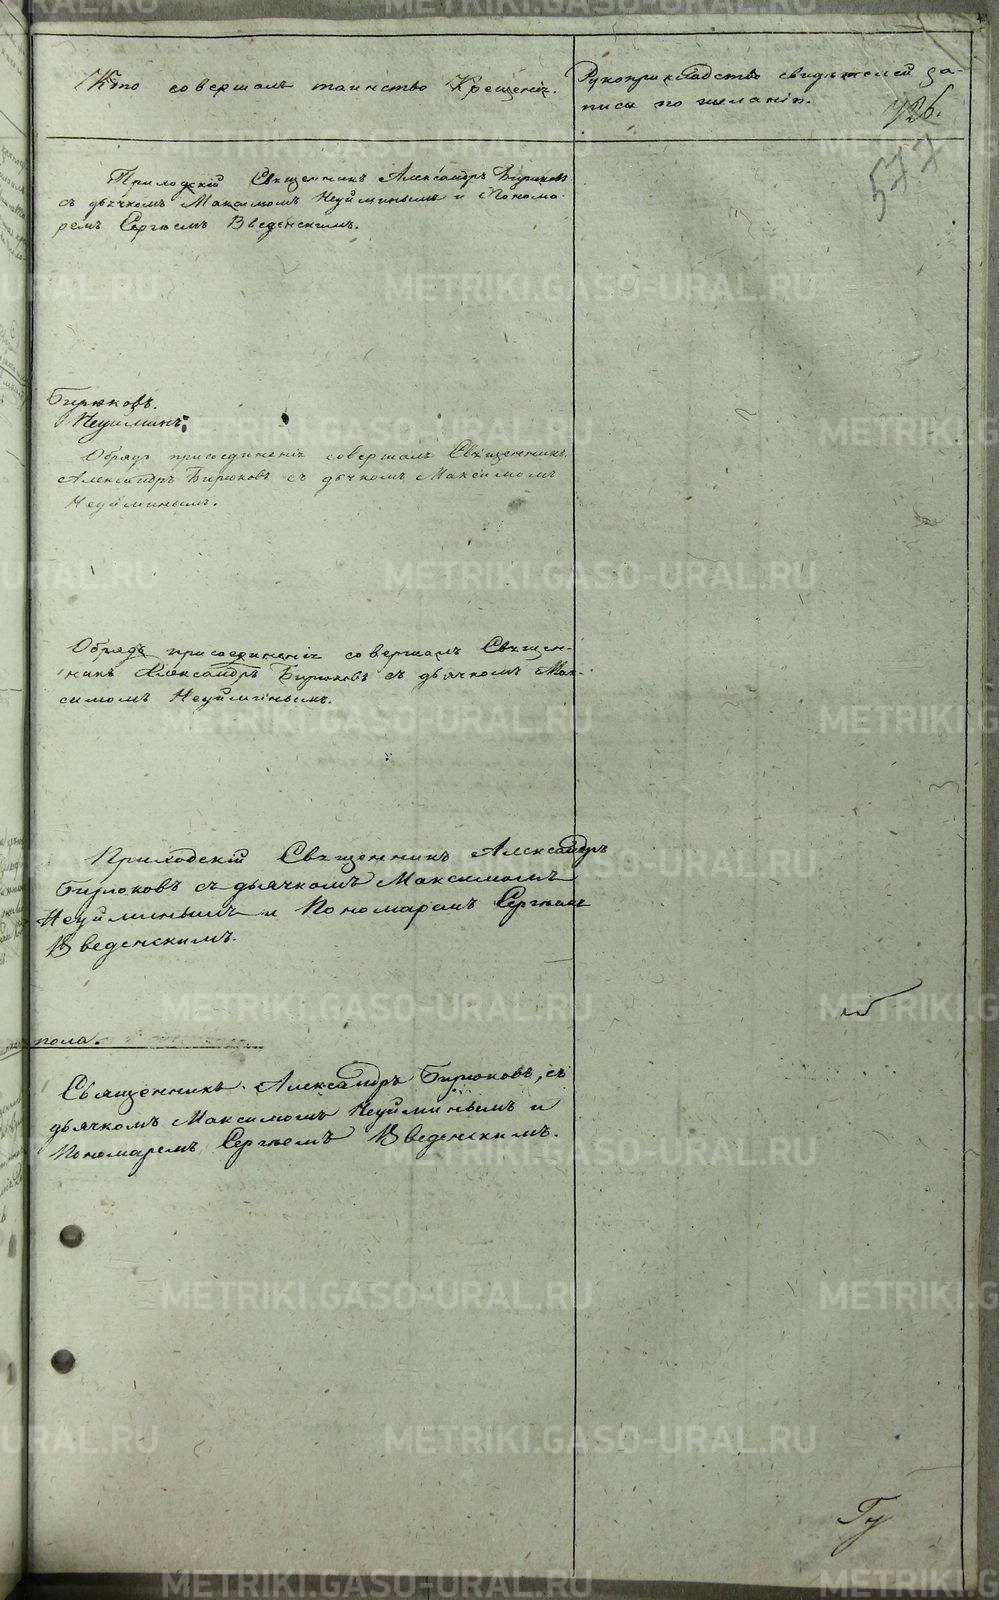 Кто совершалъ таинство Крещенія.
Рукоприкладство свидѣтелей за-
писи по желанію.
726.
577
Приходскій Священникъ Александръ Бирюковъ
съ дьячкомъ Максимомъ Неуйминымъ и Понома-
ремъ Сергѣемъ Введенскимъ.
Бирюковъ.
Неуйминъ.
Обрядъ присоединенія совершалъ Священникъ
Александръ Бирюковъ съ дьячкомъ Максимомъ
Неуйминымъ.
Обрядъ присоединенія совершалъ Священ-
никъ Александръ Бирюковъ съ дьячкомъ Мак-
симомъ Неуйминымъ.
Приходскій Священникъ Александръ
Бирюковъ съ дьячкомъ Максимомъ
Неуйминымъ и Пономаремъ Сергѣемъ
Введенскимъ.
пола.
Священникъ Александръ Бирюковъ, съ
дьячкомъ Максимомъ Неуйминымъ и
Пономаремъ Сергѣемъ Введенскимъ.
METRIKI.GASO-URAL.RU